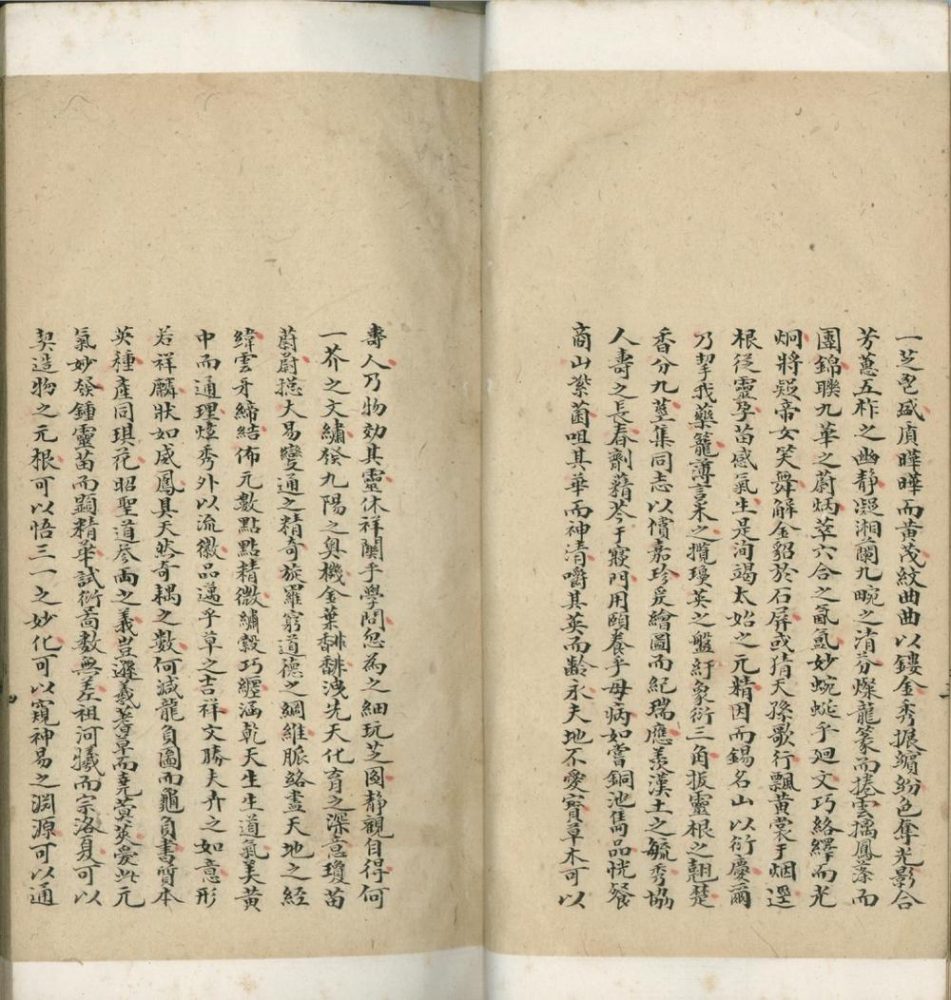 一芝皀盛貭曄曄而黃茂紋曲曲以鏤金秀挹蝐紛色奪光影合
芳蕙五柞之幽静凝湘蘭九畹之清芬燦龍篆而捧雲擕鳳藻而
團錦聯九華之蔚炳萃六合之氤氲妙蜿蜒乎廻文巧絡繹而光
炯將疑帝女笑舞解金貂於石屏或猜天孫歌行飄黃裳于烟逕
根從靈孕苗感氣生是洵竭太始之元精因而錫名山以衍慶爾
乃挈我藥籠薄言采之攬瑗英之盤紆象衍三角拔靈根之翹楚
香分九莖集同志以償嘉珍爰繪圖而紀瑞應羨漢土之毓秀協
人壽之長春劑藉苓于寢門用頤養乎母病如嘗銅池雋品恍餐
商山紫菌咀其華而神清嚼其英而齡永夫地不愛寶草木可以
壽人乃物効其靈休祥關乎學問忽為之細玩芝圖静觀自得何
一芥之文繡發九陽之奥機金葉馡馡洩先天化育之深意瓊苗
蔚蔚摅大易變通之精奇旋羅窮道德之綱維脈絡畫天地之經
緯雲牙締結佈元數點點精微繡縠巧纏涵乾天生生道氣美黃
中而通理煒秀外以流徽品邁乎草之吉祥文勝夫卉之如意形
若祥麟狀如威鳳具天然奇耦之數何减龍負圖而龜負書賀本
英種產同琪花昭聖道尽画之義豈遜羲蓍草而堯蓂莢爰此元
氣妙發鍾靈苗而顯精華試衍蓍數無差祖河犠而宗洛夏可以
契造物之元根可以悟三一之妙化可以窺神易之淵源可以通